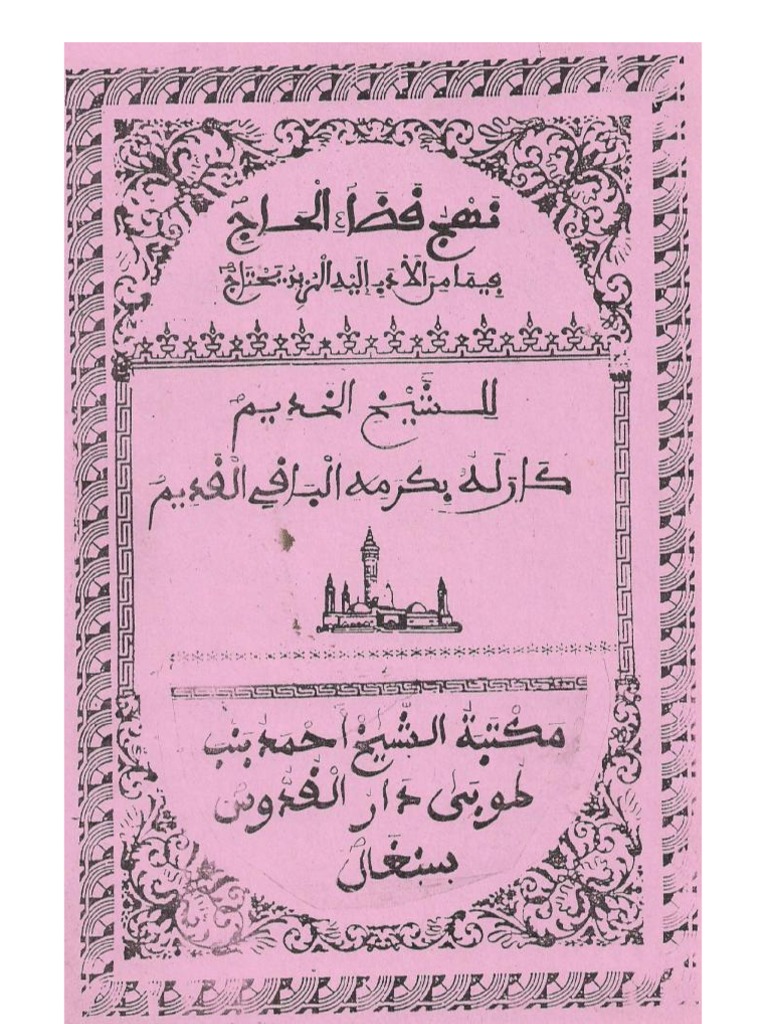 نَهْجُ قَضَاءِ الْحَاجِ
فِيمَا مِنَ الْأَدَبِ إِلَيْهِ الْمُرِيدُ يَحْتَاجُ
لِلشَّيْخِ الْخَدِيمِ
كَانَ لَهُ بِكَرَمِهِ الْبَاقِي الْقَدِيمُ
مَكْتَبَةُ الشَّيْخِ أَحْمَدَ بَنْبَ
طُوبَى دَارُ الْقُدُّوسِ
بِسِنِغَالْ